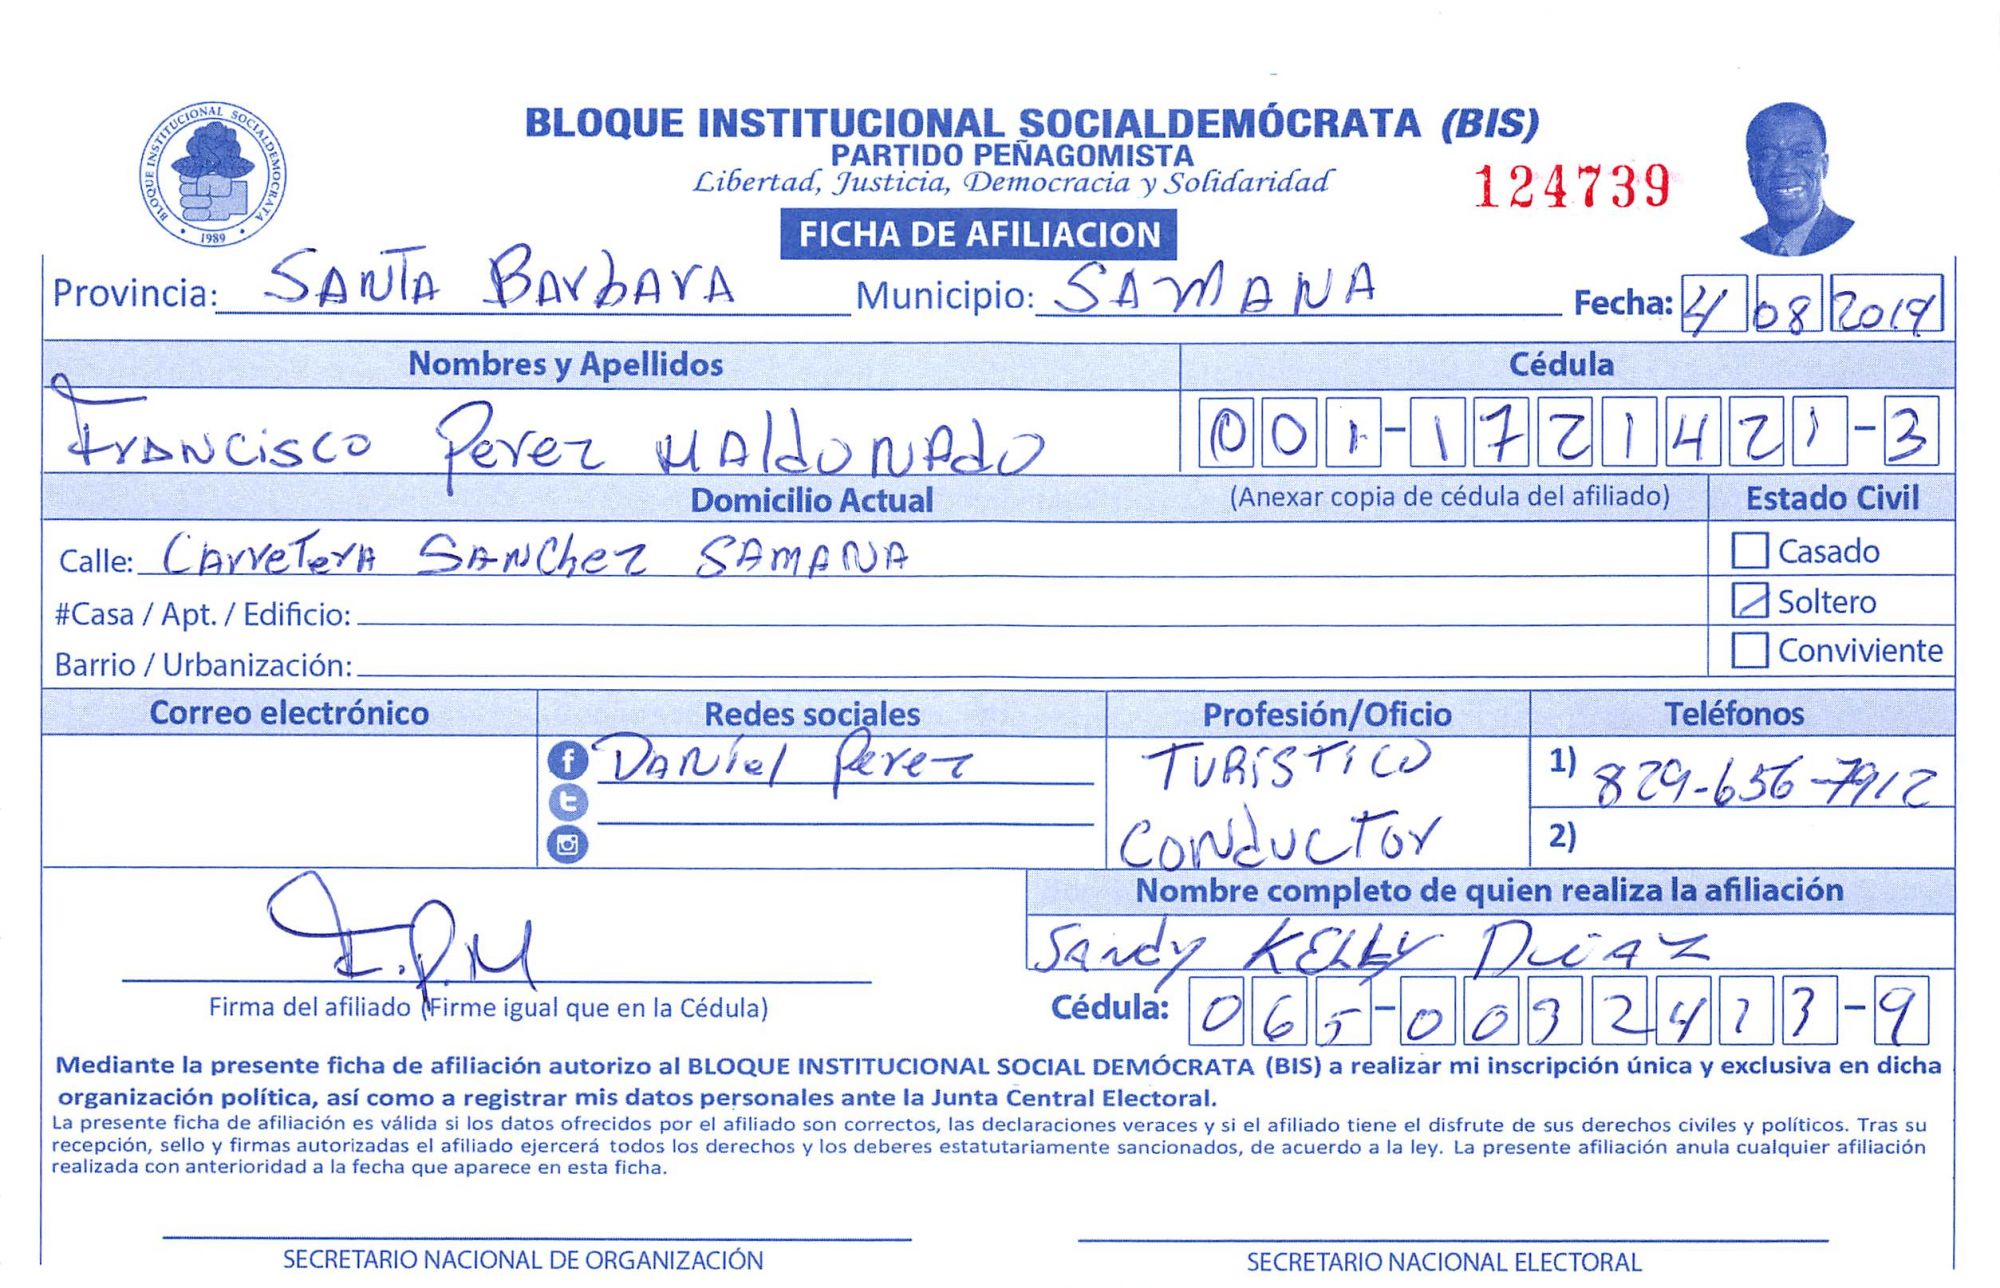 BLOQUE INSTITUCIONAL SOCIALDEMOCRATA
1989
BLOQUE INSTITUCIONAL SOCIALDEMÓCRATA (BIS)
PARTIDO PEÑAGOMISTA
Libertad, Justicia, Democracia y Solidaridad
124739
FICHA DE AFILIACION
Provincia: SANTA BArbArA Municipio: SAMANA Fecha: 4 08 2019
Nombres y Apellidos Cédula
FrANCisco Perez MAldoNAdo 001-1721421-3
Domicilio Actual (Anexar copia de cédula del afiliado) Estado Civil
Calle: CArreTerA SANChez SAMANA Casado
#Casa / Apt. / Edificio: Soltero
Barrio / Urbanización: Conviviente
Correo electrónico Redes sociales Profesión/Oficio Teléfonos
DANiel Perez TURiSTICO 1) 829-656-7912
CONduCTor 2)
Nombre completo de quien realiza la afiliación
F.P.M Sandy KELLY DiAZ
Firma del afiliado (Firme igual que en la Cédula) Cédula: 065-0032473-9
Mediante la presente ficha de afiliación autorizo al BLOQUE INSTITUCIONAL SOCIAL DEMÓCRATA (BIS) a realizar mi inscripción única y exclusiva en dicha
organización política, así como a registrar mis datos personales ante la Junta Central Electoral.
La presente ficha de afiliación es válida si los datos ofrecidos por el afiliado son correctos, las declaraciones veraces y si el afiliado tiene el disfrute de sus derechos civiles y políticos. Tras su
recepción, sello y firmas autorizadas el afiliado ejercerá todos los derechos y los deberes estatutariamente sancionados, de acuerdo a la ley. La presente afiliación anula cualquier afiliación
realizada con anterioridad a la fecha que aparece en esta ficha.
SECRETARIO NACIONAL DE ORGANIZACIÓN SECRETARIO NACIONAL ELECTORAL